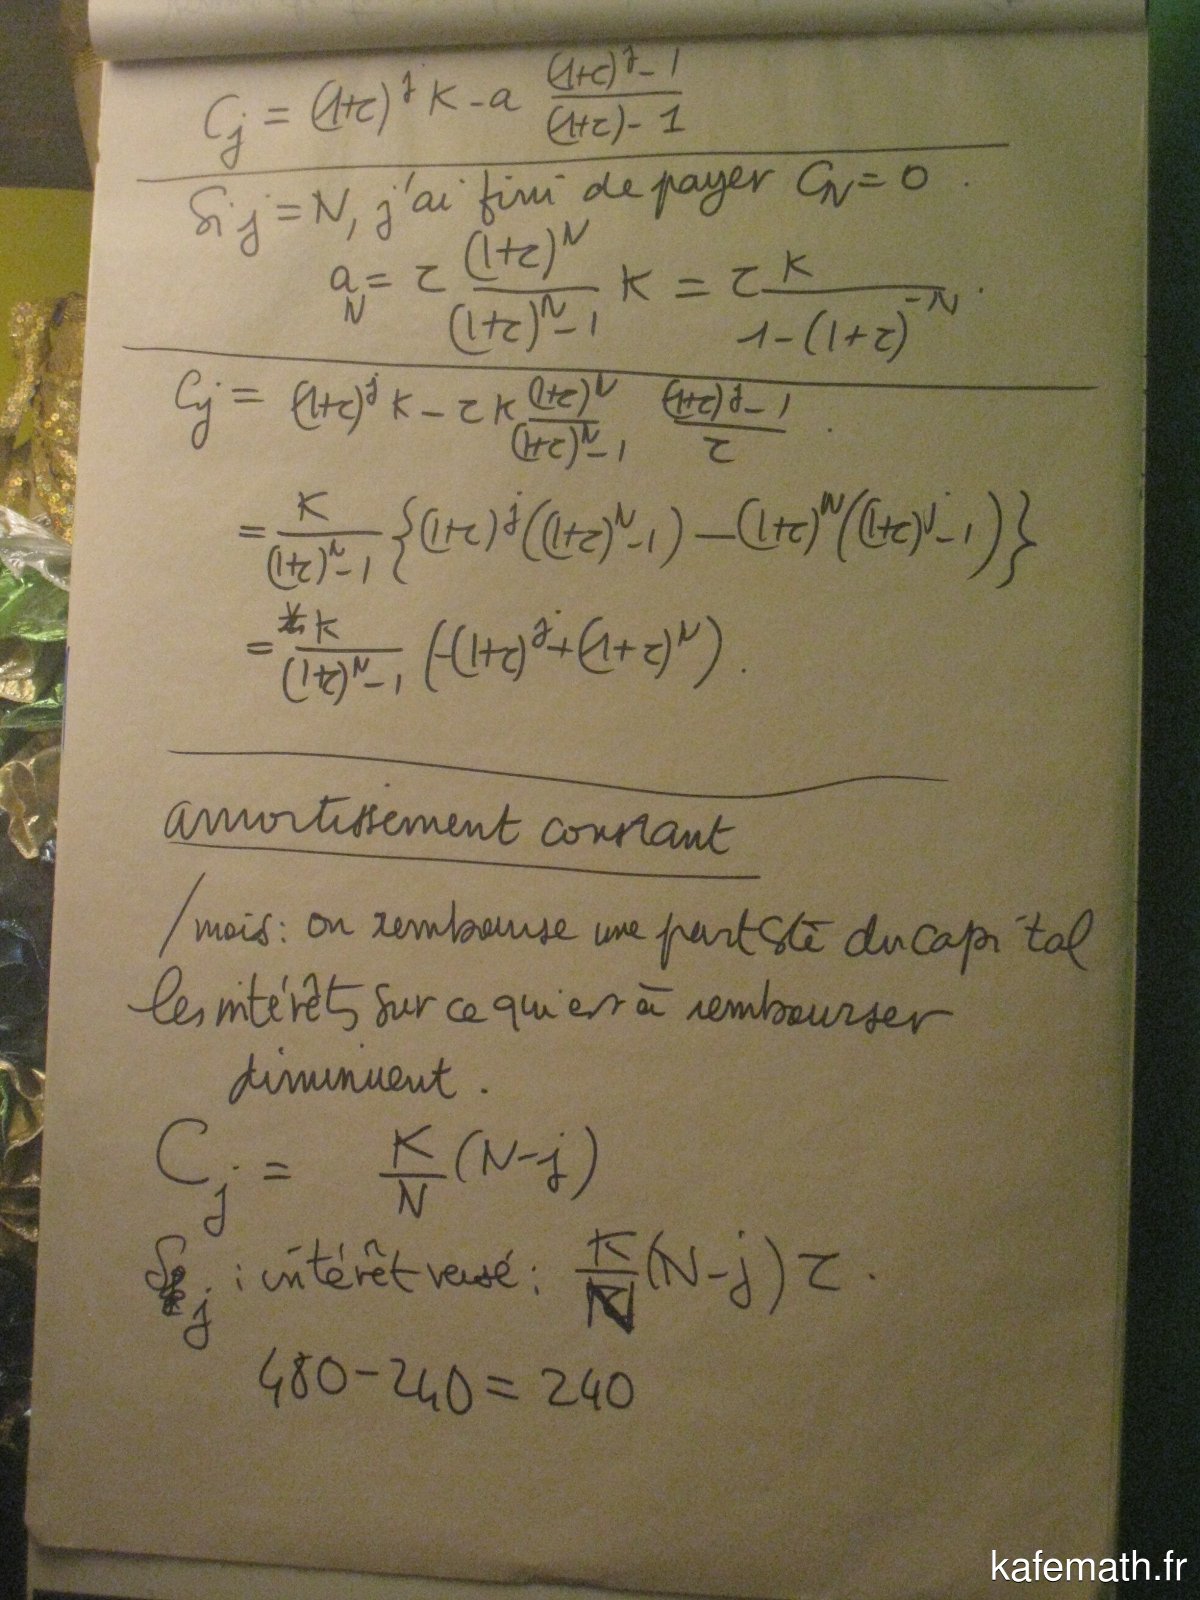 C_j = (1+τ)^j K - a ((1+τ)^j - 1)/((1+τ) - 1)
Si j = N, j'ai fini de payer C_N = 0.
a_N = τ (1+τ)^N/((1+τ)^N - 1) K = τ K/(1-(1+τ)^-N).
C_j = (1+τ)^j K - τ K (1+τ)^N/((1+τ)^N - 1) ((1+τ)^j - 1)/τ.
= K/((1+τ)^N - 1) {(1+τ)^j ((1+τ)^N - 1) - (1+τ)^N ((1+τ)^j - 1)}
= K/((1+τ)^N - 1) (-(1+τ)^j + (1+τ)^N).
amortissement constant
/mois : on rembourse une part cste du capital
les intérêts sur ce qui est à rembourser
diminuent.
C_j = K/N (N-j)
j : intérêt versé : K/N (N-j) τ.
480-240 = 240
kafemath.fr